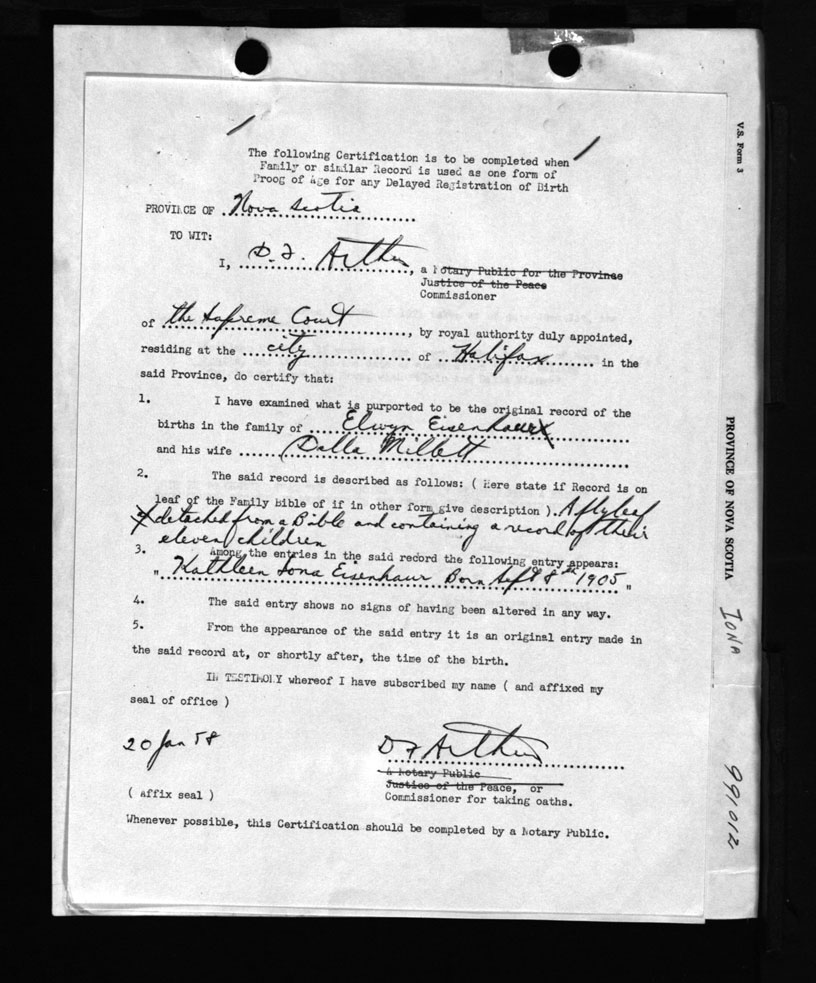 The following Certification is to be completed when
Family or similar Record is used as one form of
Proog of Age for any Delayed Registration of Birth
PROVINCE OF Nova Scotia
TO WIT:
I, D. F. Arthur, a Notary Public for the Province
Justice of the Peace
Commissioner
of the Supreme Court, by royal authority duly appointed,
residing at the city of Halifax in the
said Province, do certify that:
1. I have examined what is purported to be the original record of the
births in the family of Elwyn Eisenhaur
and his wife Dalla Millett
2. The said record is described as follows: ( Here state if Record is on
leaf of the Family Bible of if in other form give description ). A flyleaf
detached from a Bible and containing a record of their
eleven children
3. Among the entries in the said record the following entry appears:
" Kathleen Iona Eisenhaur Born Sept 8th 1905 "
4. The said entry shows no signs of having been altered in any way.
5. From the appearance of the said entry it is an original entry made in
the said record at, or shortly after, the time of the birth.
IN TESTIMONY whereof I have subscribed my name ( and affixed my
seal of office )
20 Jan 58
D F Arthur
A Notary Public
Justice of the Peace, or
( affix seal )
Commissioner for taking oaths.
Whenever possible, this Certification should be completed by a Notary Public.
V.S. Form 3
PROVINCE OF NOVA SCOTIA
IONA
991012